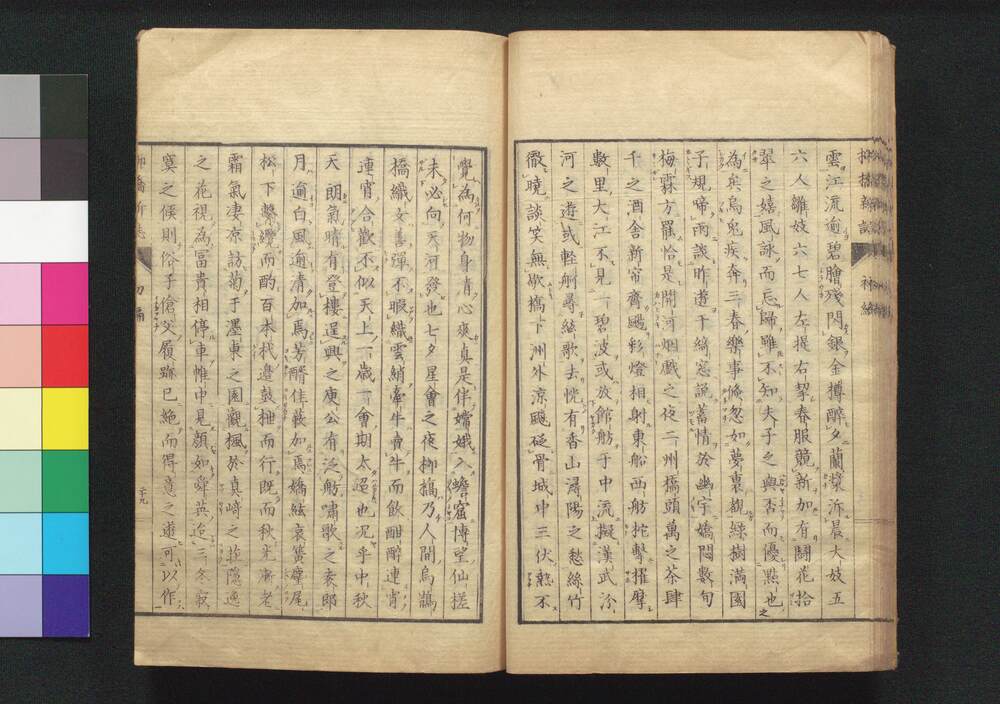 雲江流遡碧膾殘閃銀金樽醉夕蘭槳泝晨大妓五
六人雛妓六七人左提右挈春服競新加有鬪花拾
翠之嬉風詠而忘歸雖不知夫子之與否而優點也之
為矣烏兔疾奔三春樂事倏忽如夢裏綠樹滿園
子規啼雨談昨遊于綺窓說蓄情於幽宇嬌悶數旬
梅霖方罷恰是開河烟戲之夜二州橋頭萬之茶肆
千之酒舍新帘齊颺彩燈相射東船西舫柁擊擢摩
數里大江不見一碧波或放館舫于中流擬漢武汾
河之遊或輕舸尋絲歌去恍有香山潯陽之愁絲竹
徹曉談笑無歇橋下洲外涼颸砭骨城中三伏熱不
覺為何物身清心爽真是伴嫦娥入蟾窟博望仙槎
未必向天河發也七夕星會之夜柳橋乃人間烏鵲
橋織女善彈不暇織雲綃牽牛賣牛而飲酣醉連宵
連宵合歡不似天上一歲一會期太迢也况乎中秋
天朗氣晴有登樓逞興之庾公有泛舫嘯歌之袁郎
月逾白風逾清加焉芳醑佳蔌加焉嬌絃哀
松下繫纜而酌百本杙邊鼓枻而行既而秋半漸老
霜氣凄凉訪菊于墨東之園觀楓於真崎之
之花視為冨貴相停車帷中見顏如舜英迨三冬寂
寞之候則俗子傖父履跡已絶而得意之遊可以作
柳橋新誌 初編 十九